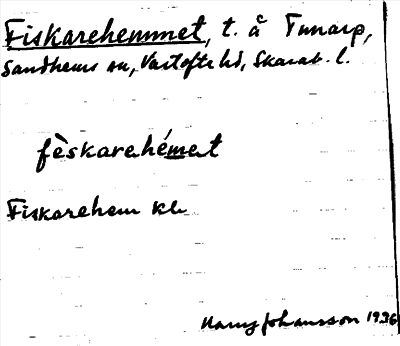 Fiskarehemmet, t. å Tunarp,
Sandhems sn, Vartofta hd, Skarab. l.
fèskarehémet
Fiskarehem kb
Harry Johansson 1936